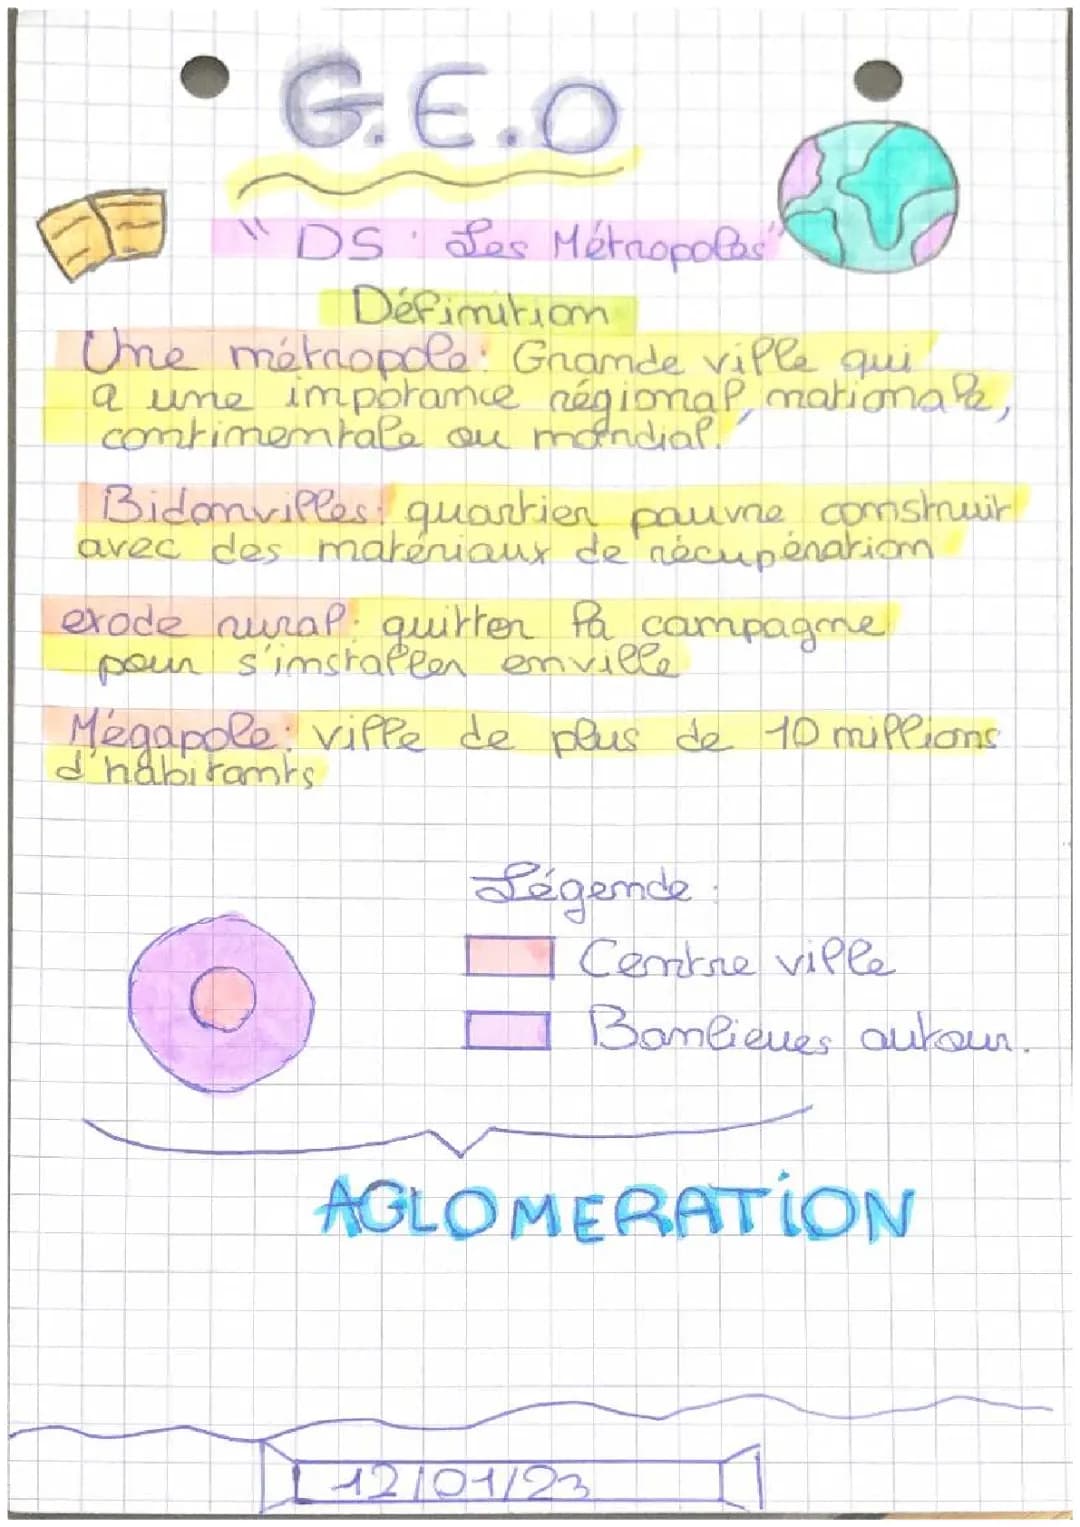 G.E.O
"DS : Les Métropoles"
Définition
Une métropole: Grande ville qui
a une imporance régional, nationale,
continentale ou mondial.
Bidonvilles: quartier pauvre construit
avec des matériaux de récupération
exode rural: quitter la campagne
pour s'installer enville
Mégapole: ville de plus de 10 millions
d'habitants
Légende :
Centre ville
Banlieues autour.
AGLOMERATION
12/01/23